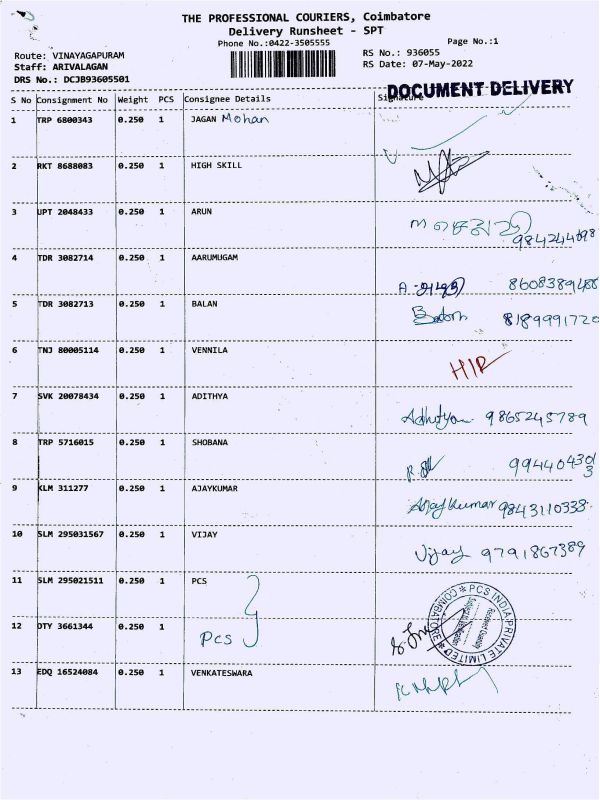 THE PROFESSIONAL COURIERS, Coimbatore
Delivery Runsheet - SPT
Phone No.:0422-3505555
Page No.:1
Route: VINAYAGAPURAM
RS No.: 936055
Staff: ARIVALAGAN
RS Date: 07-May-2022
DRS No.: DCJB93605501
DOCUMENT DELIVERY
S No Consignment No Weight PCS Consignee Details Signature
1 TRP 6800343 0.250 1 JAGAN Mohan
2 RKT 8688083 0.250 1 HIGH SKILL
3 UPT 2048433 0.250 1 ARUN
4 TDR 3082714 0.250 1 AARUMUGAM 8608389488
5 TDR 3082713 0.250 1 BALAN 8189991720
6 TNJ 80005114 0.250 1 VENNILA
7 SVK 20078434 0.250 1 ADITHYA Adhitya 9865245789
8 TRP 5716015 0.250 1 SHOBANA 9944043013
9 KLM 311277 0.250 1 AJAYKUMAR Ajaykumar 9843110338
10 SLM 295031567 0.250 1 VIJAY Vijay 9791867389
11 SLM 295021511 0.250 1 PCS
12 OTY 3661344 0.250 1 Pcs
PCS INDIA PRIVATE LIMITED COIMBATORE
13 EDQ 16524084 0.250 1 VENKATESWARA